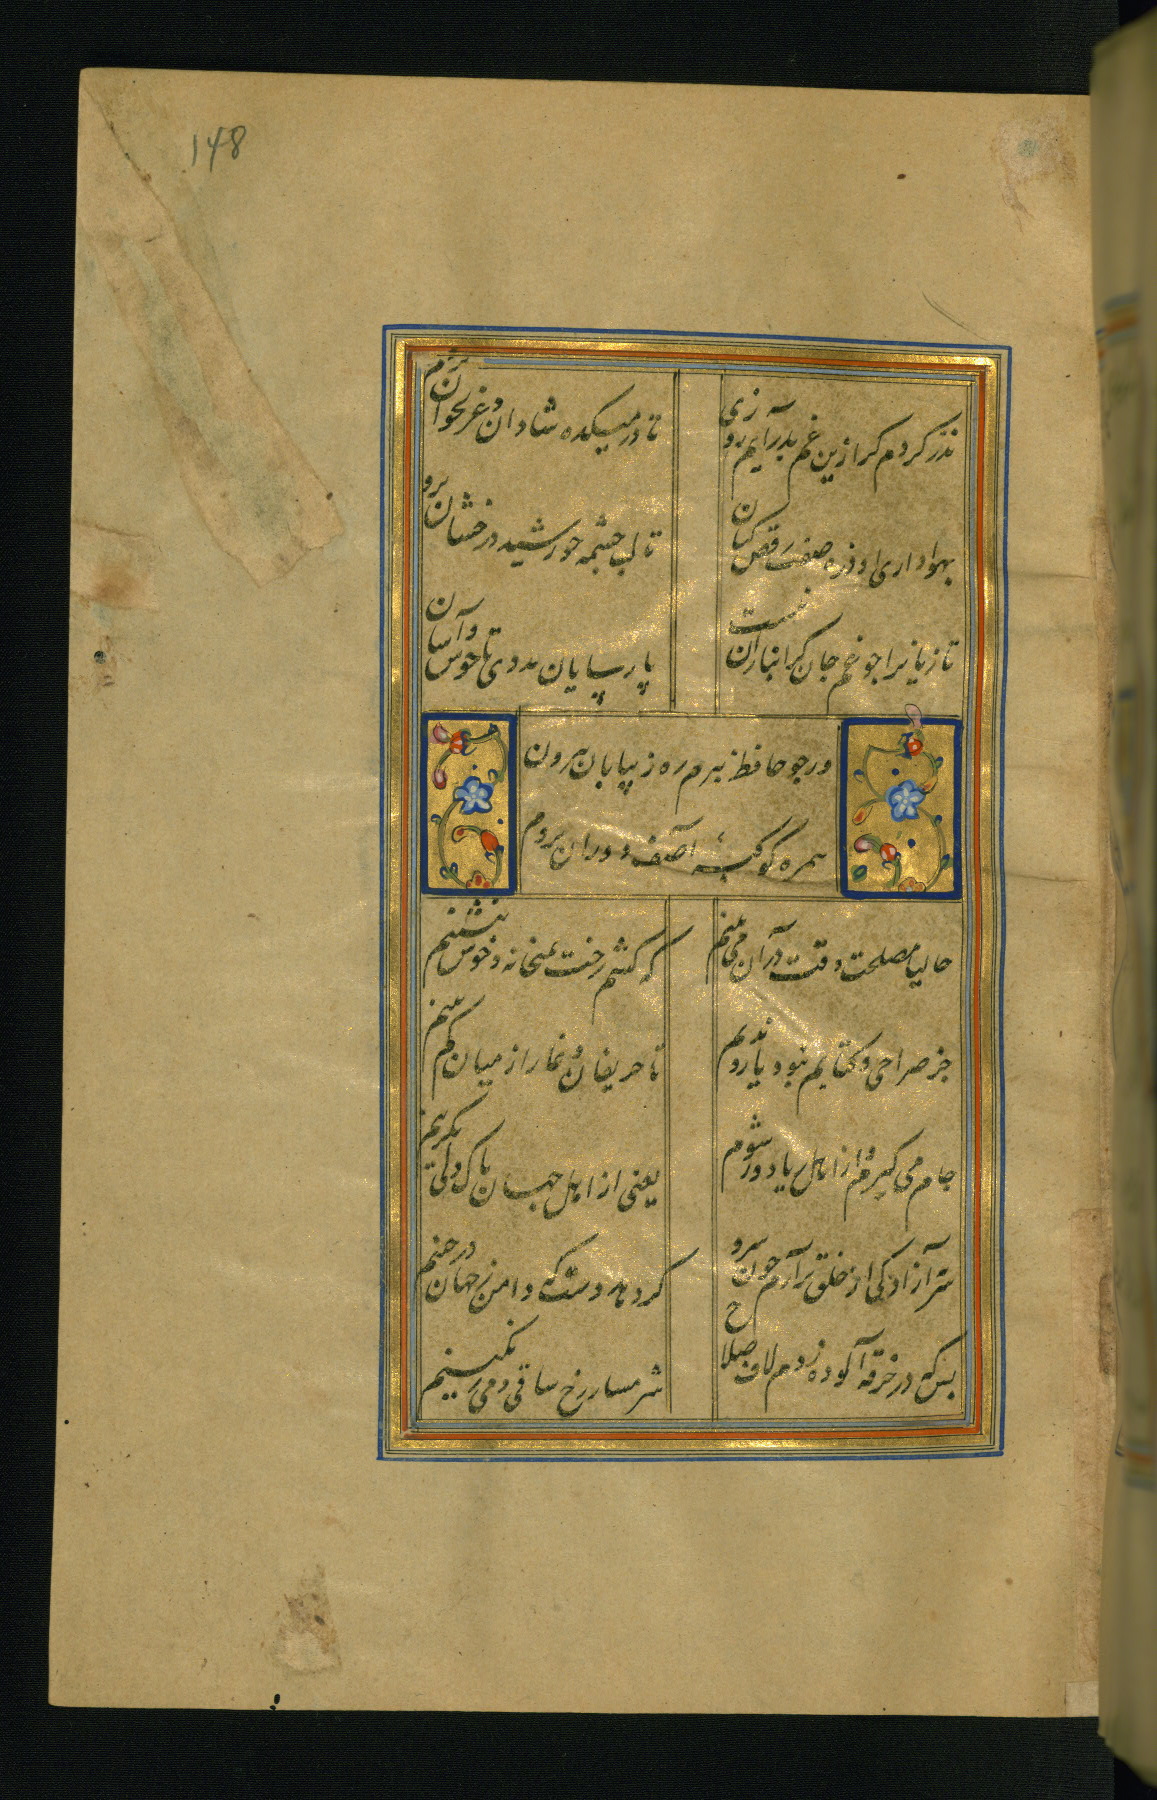 148
نذر کردم کر ازین غم بدر آیم روزی
تا در میکده شادان و غزلخوان بروم
بهواداری او ذره صفت رقص کنان
تا لب چشمه خورشید درخشان بروم
تازیانرا چو غم جان کرانباران نیست
پارسایان مددی تا خوش و آسان بروم
ور چو حافظ نبرم ره ز بیابان بیرون
همره کوکبهٔ آصف دوران بروم
حالیا مصلحت وقت در آن می بینم
که کشم رخت بمیخانه و خوش بنشینم
جز صراحی و کتابم نبود یار و ندیم
تا حریفان دغا را ز میان کم بینم
جام می کیرم و از اهل ریا دور شوم
یعنی از اهل جهان پاک دلی بکزینم
سر آزادکی از خلق بر آرم چون سرو
کر دهد دست که دامن ز جهان در چینم
بس که در خرقه آلوده زدم لاف صلاح
شرمسار رخ ساقی و می رنکینم